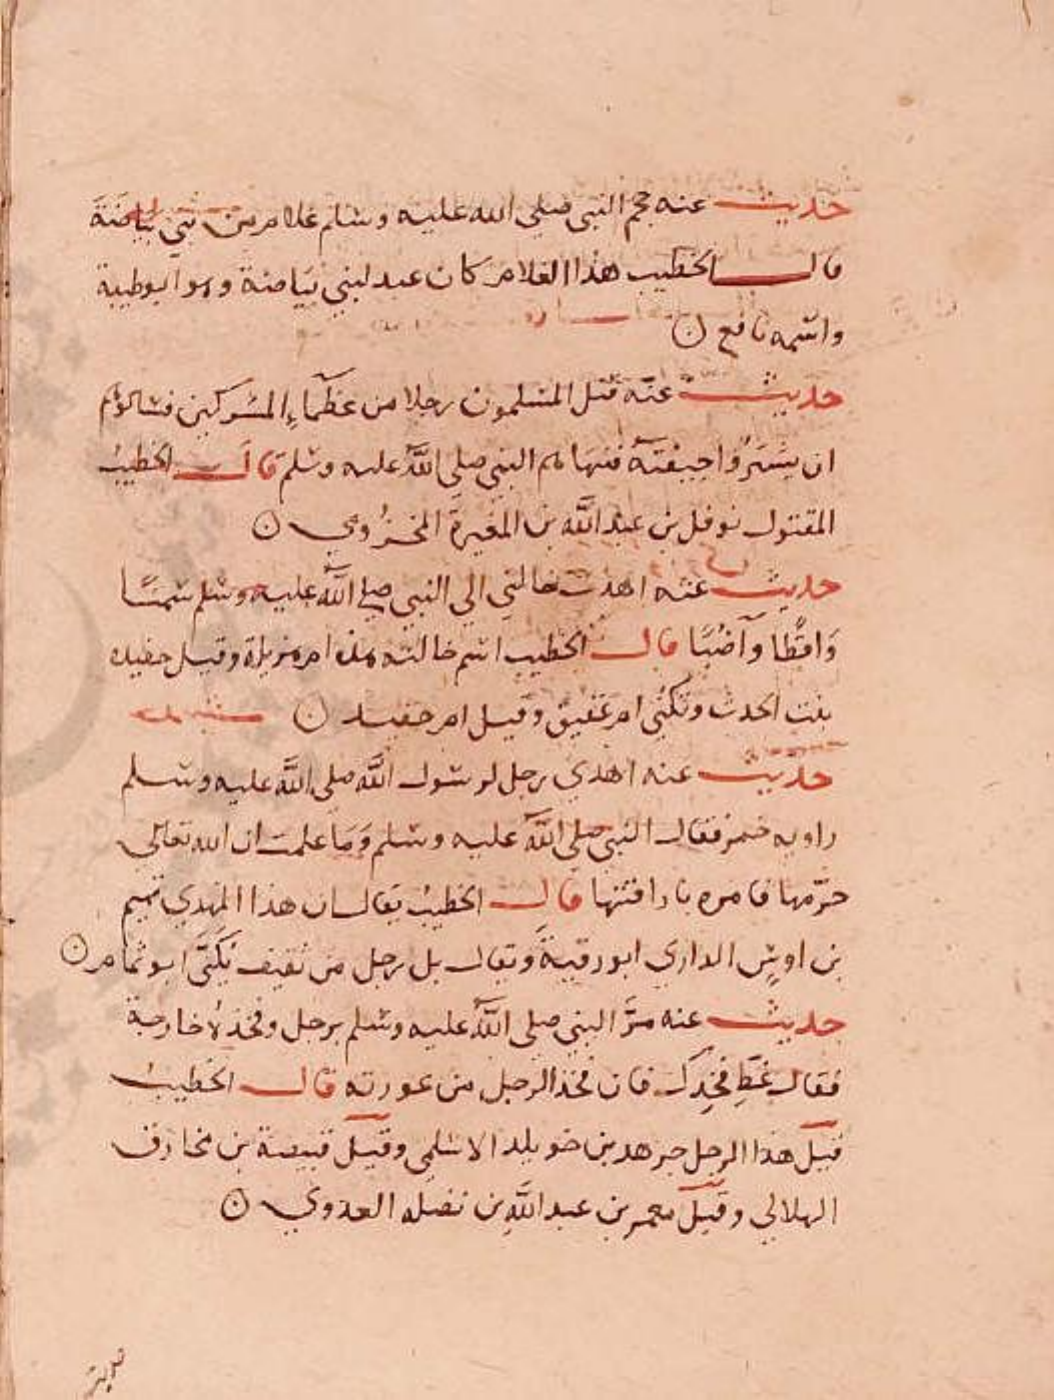 حديث عنه حجم النبي صلي الله عليه وسلم غلام من بني بياضة
قال الخطيب هذا الغلام كان عبد لبني بياضة وهو ابو طيبة
واسمه نافع ن
حديث عنه قتل المسلمون رجلا من عظماء المشركين فسالوهم
ان يشتروا جيفته فنهاهم النبي صلي الله عليه وسلم قال الخطيب
المقتول نوفل بن عبد الله بن المغيرة المخزومي ن
حديث عنه اهدت خالتي الي النبي صلي الله عليه وسلم سمنًا
وَاقطًا وآضُبًا قال الخطيب اسم خالته هذه ام هزيلة وقيل حفيده
بنت الحدث وتكنى ام عقيق وقيل ام حفيد ن
حديث عنه اهدي رجل لرسول الله صلي الله عليه وسلم
راويه خمر فقال النبي صلي الله عليه وسلم وَمَا علمت ان الله تعالي
حرّمها فامره باراقتها قال الخطيبُ يقال ان هذا المهدي تميم
بن اوسٍ الداري ابو رقية ويقال بل رجل من ثقيف يُكنّى ابو تمام ن
حديث عنه مرَّ النبي صلي الله عليه وسلم برجل وفخذهُ خارجة
فقال غَطِّ فخِذك فان فخذ الرجل من عورته قال الخطيبُ
قيل هذا الرجل جرهد بن خويلد الاسلمي وقيل قبيصة بن مخارق
الهلالي وقيل معمر بن عبد اللهِ بن نضله العدوي ن
حديث